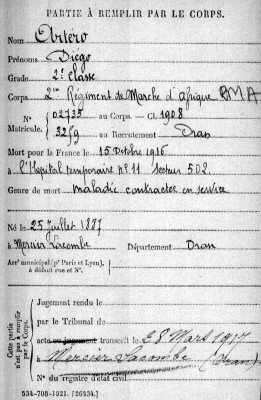 PARTIE À REMPLIR PAR LE CORPS.
Nom Artéro
Prénoms Diégo
Grade 2e classe
Corps 2me Régiment de Marche d'afrique RMA
N° 02735 au Corps. — Cl. 1908
Matricule. 3259 au Recrutement Oran
Mort pour la France le 15 Octobre 1916
à l'Hôpital temporaire n° 11 Secteur 502
Genre de mort maladie contractée en service
Né le 25 Juillet 1887
à Mercier Lacombe Département Oran
Arr¹ municipal (pr Paris et Lyon),
à défaut rue et N°.
Cette partie n'est pas à remplir par le Corps.
Jugement rendu le
par le Tribunal de
acte ou jugement transcrit le 28 Mars 1917
à Mercier Lacombe (Oran)
N° du registre d'état civil
534-708-1921. [26434.]